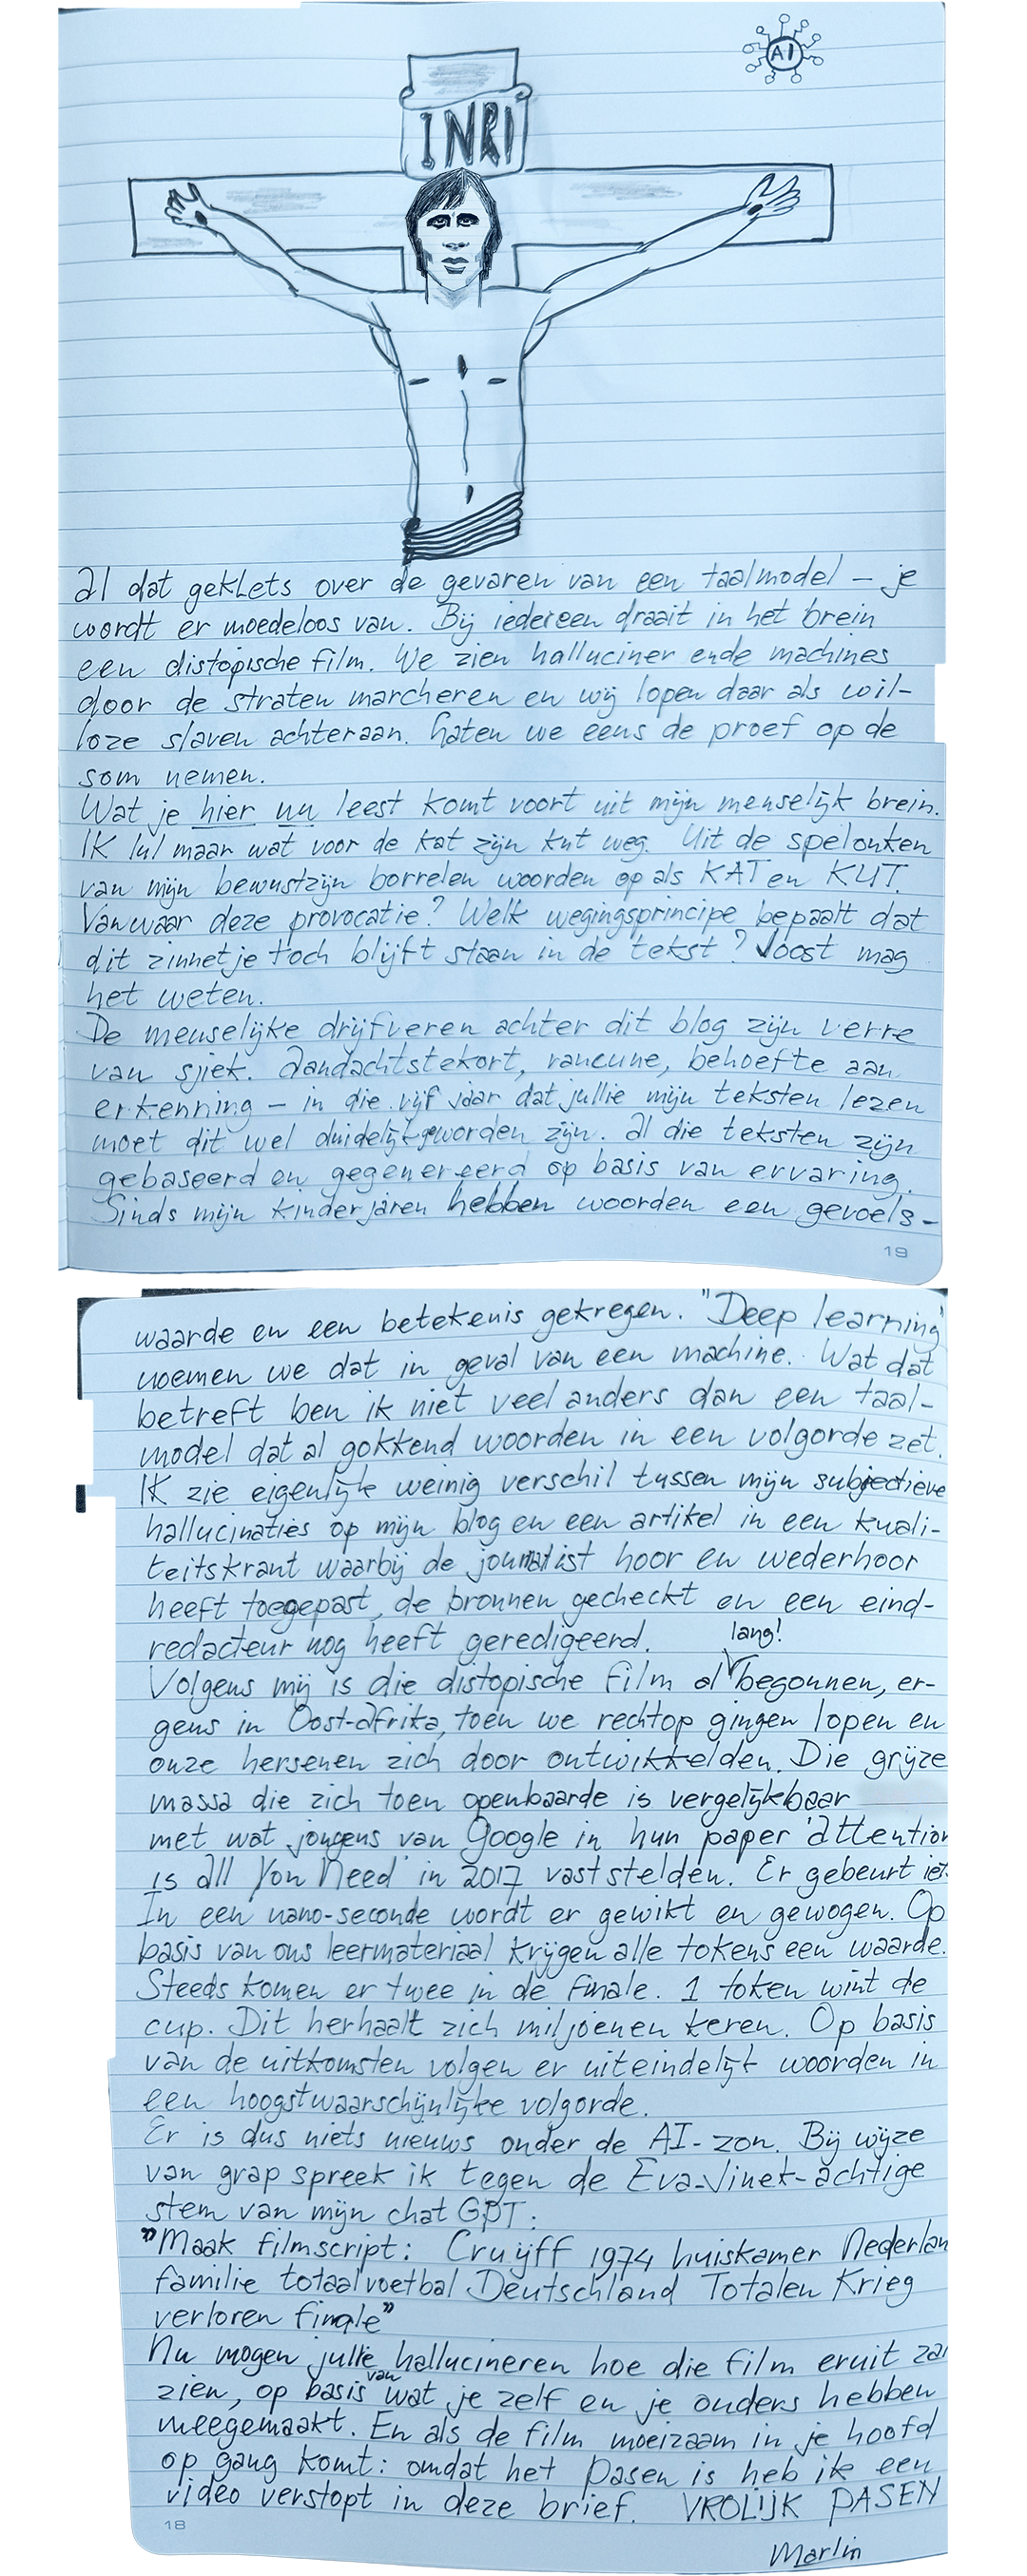 AI
INRI
Al dat geklets over de gevaren van een taalmodel – je
wordt er moedeloos van. Bij iedereen draait in het brein
een distopische film. We zien hallucinerende machines
door de straten marcheren en wij lopen daar als wil-
loze slaven achteraan. Laten we eens de proef op de
som nemen.
Wat je hier nu leest komt voort uit mijn menselijk brein.
Ik lul maar wat voor de kat zijn kut weg. Uit de spelonken
van mijn bewustzijn borrelen woorden op als KAT en KUT.
Vanwaar deze provocatie? Welk wegingsprincipe bepaalt dat
dit zinnetje toch blijft staan in de tekst? Joost mag
het weten.
De menselijke drijfveren achter dit blog zijn verre
van sjiek. Aandachtstekort, rancune, behoefte aan
erkenning – in die vijf jaar dat jullie mijn teksten lezen
moet dit wel duidelijk geworden zijn. Al die teksten zijn
gebaseerd en gegenereerd op basis van ervaring.
Sinds mijn kinderjaren hebben woorden een gevoels-
19
waarde en een betekenis gekregen. "Deep learning"
noemen we dat in geval van een machine. Wat dat
betreft ben ik niet veel anders dan een taal-
model dat al gokkend woorden in een volgorde zet.
Ik zie eigenlijk weinig verschil tussen mijn subjectieve
hallucinaties op mijn blog en een artikel in een kwali-
teitskrant waarbij de journalist hoor en wederhoor
heeft toegepast, de bronnen gecheckt en een eind-
redacteur nog heeft geredigeerd.
lang!
Volgens mij is die distopische film al begonnen, er-
gens in Oost-Afrika, toen we rechtop gingen lopen en
onze hersenen zich door ontwikkelden. Die grijze
massa die zich toen openbaarde is vergelijkbaar
met wat jongens van Google in hun paper 'Attention
is all You Need' in 2017 vaststelden. Er gebeurt iets
In een nano-seconde wordt er gewikt en gewogen. Op
basis van ons leermateriaal krijgen alle tokens een waarde.
Steeds komen er twee in de finale. 1 token wint de
cup. Dit herhaalt zich miljoenen keren. Op basis
van de uitkomsten volgen er uiteindelijk woorden in
een hoogstwaarschijnlijke volgorde.
Er is dus niets nieuws onder de AI-zon. Bij wijze
van grap spreek ik tegen de Eva-Jinek-achtige
stem van mijn chat GPT:
"Maak filmscript: Cruijff 1974 huiskamer Nederlan
familie totaalvoetbal Deutschland Totalen Krieg
verloren finale"
Nu mogen jullie hallucineren hoe die film eruit zal
zien, op basis van wat je zelf en je ouders hebben
meegemaakt. En als de film moeizaam in je hoofd
op gang komt: omdat het Pasen is heb ik een
video verstopt in deze brief. VROLIJK PASEN
18
Marlin